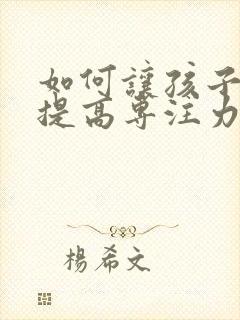 如何讓孩子
提高專注力
楊希文